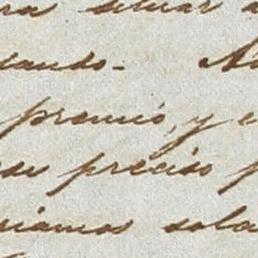 ra situar a
tando. A
premio, y e
ese preciso p
riamos sola